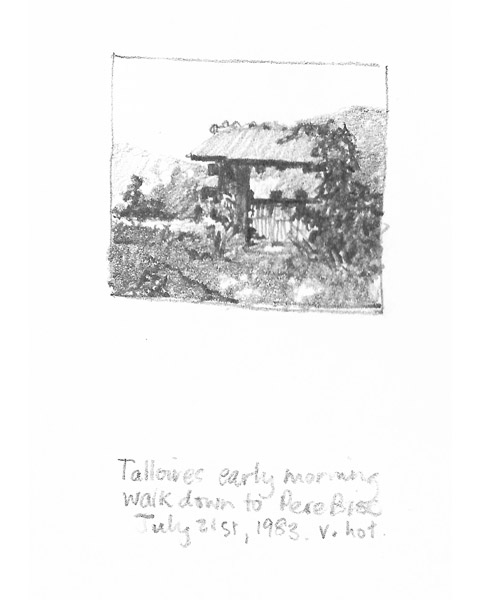 Talloires early morning
walk down to Pere Bise
July 21st, 1983. v. hot.